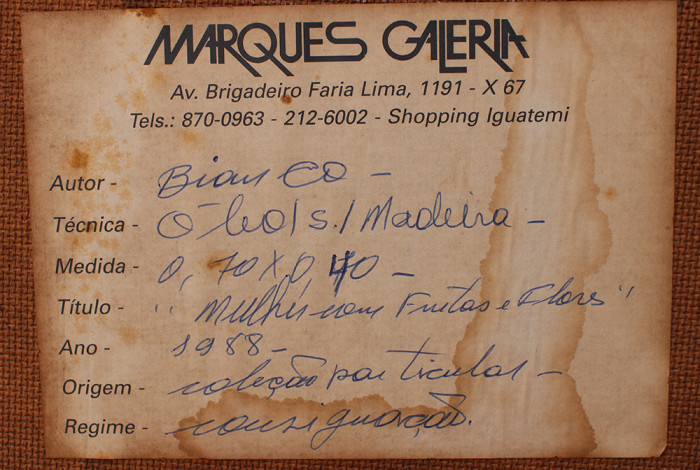 MARQUES GALERIA
Av. Brigadeiro Faria Lima, 1191 - X 67
Tels.: 870-0963 - 212-6002 - Shopping Iguatemi
Autor - Bianco -
Técnica - Óleo/s./Madeira -
Medida - 0,70 X 0,40 -
Título - "Mulher com Frutas e Flores"
Ano - 1988 -
Origem - coleção particular -
Regime - consignação.